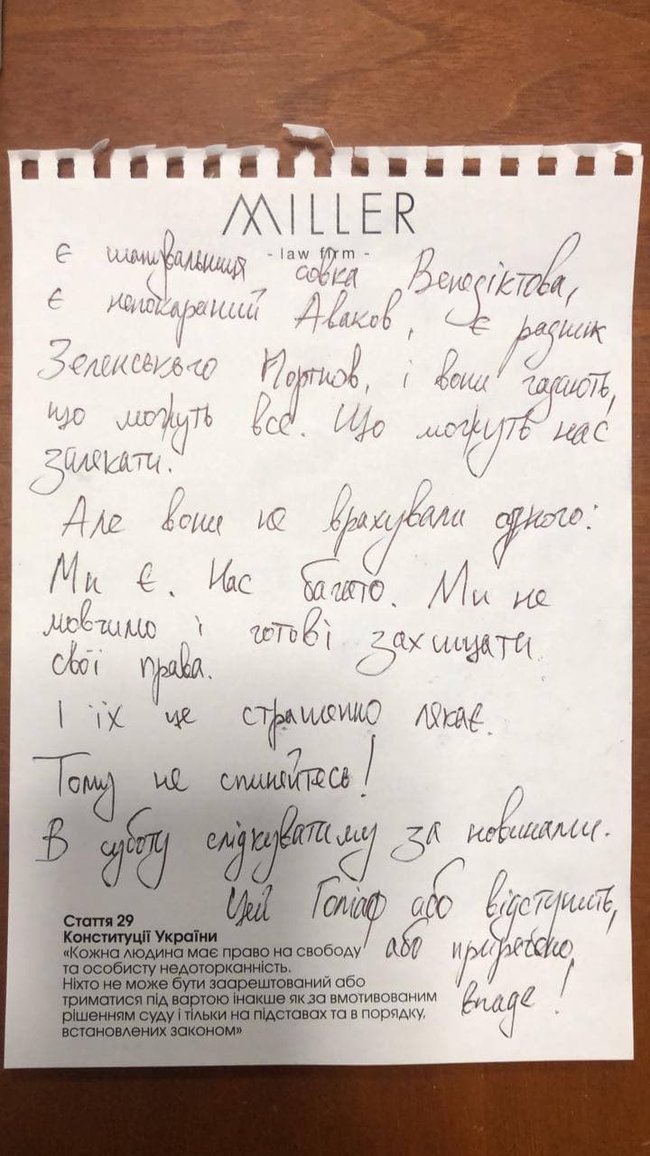 MILLER
- law firm -
Є шанувальниця совка Венедіктова,
Є непокараний Аваков, Є радник
Зеленського Портнов, і вони гадають,
що можуть все. Що можуть нас
залякати.
Але вони не врахували одного:
Ми Є. Нас багато. Ми не
мовчимо і готові захищати
свої права.
І їх це страшенно лякає.
Тому не спиняйтесь!
В суботу слідкуватиму за новинами.
Цей Голіаф або відступить,
або приречено
впаде!
Стаття 29
Конституції України
«Кожна людина має право на свободу
та особисту недоторканність.
Ніхто не може бути заарештований або
триматися під вартою інакше як за вмотивованим
рішенням суду і тільки на підставах та в порядку,
встановлених законом»